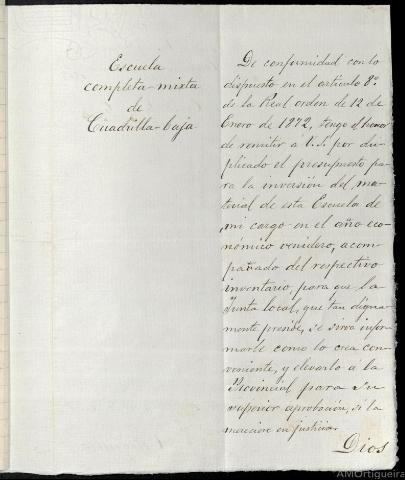 Escuela
completa-mixta
de
Cuadrilla-baja
De conformidad con lo
dispuesto en el articulo 8º
de la Real orden de 12 de
Enero de 1872, tengo el honor
de remitir á V.S. por du-
plicado el presupuesto pa-
ra la inversión del ma-
terial de esta Escuela de
mi cargo en el año eco-
nómico venidero, acom-
pañado del respectivo
inventario, para que la
Junta local, que tan digna-
mente preside, se sirva infor-
marle como lo crea con-
veniente, y elevarlo á la
Provincial para su
superior aprobación, si la
mereciere en justicia.
Dios
AMOrtigueira